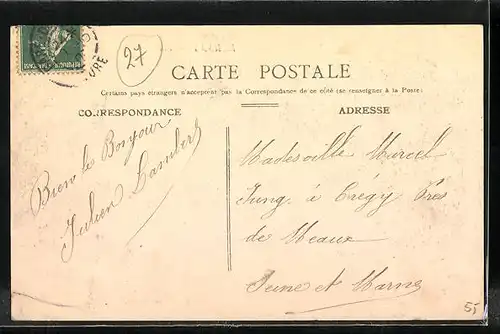 27
CARTE POSTALE
Certains pays étrangers n'acceptent pas la Correspondance de ce côté (se renseigner à la Poste)
CORRESPONDANCE
ADRESSE
Bien le Bonjour
Julien Lambert
Madesoille Marcel
Jung à Crégy Près
de Meaux
Seine et Marne
55